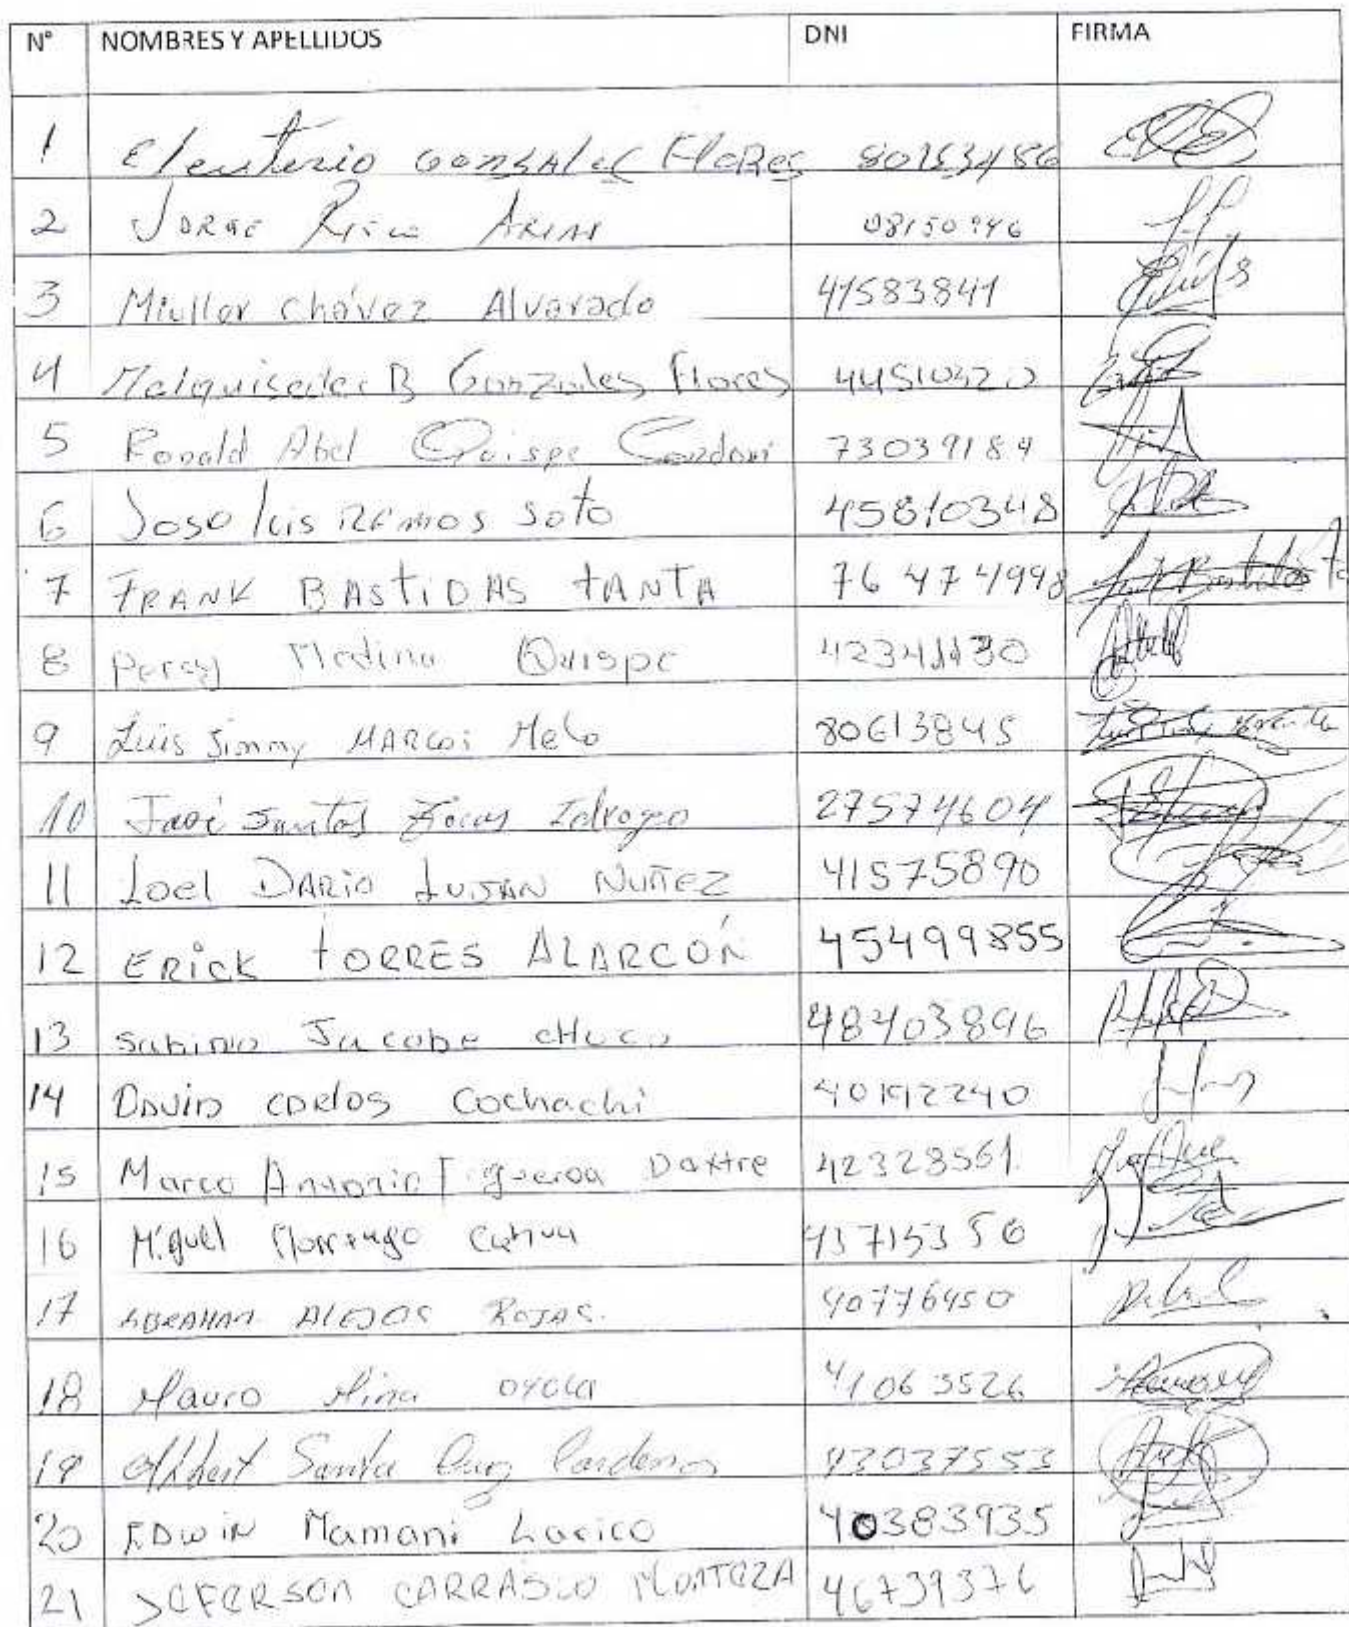 N° NOMBRES Y APELLIDOS DNI FIRMA
1 Eleuterio GONSALEC FLORES 80153486
2 JORGE ARIAS
3 Miuller Chávez Alvarado 41583841
4 Melquisedec B Gonzales Flores 44510320
5 Ronald Abel Quispe Condori 73039184
6 Jose luis REMOS Soto 45810348
7 FRANK BASTIDAS TANTA 76474998
8 Percy Medina Quispe
9 Luis Jimmy MARCOS Melo 80613845
10 José Santos Idrogo 27574604
11 Loel DARIO LUJAN NUÑEZ 41575890
12 ERICK TORRES ALARCÓN 45499855
13 Sabino Jacobe CHUCO 48403896
14 DAVID CARLOS Cochachi
15 Marco Antonio Figueroa Daxtre 42328561
16 Miguel 43715356
17 ABRAHAM ALEJOS ROJAS. 40776450
18 Mauro Mina OYOLA 41063526
19 Albert Santa Cruz Cardenas 43037553
20 EDWIN Mamani Larico 40383935
21 JEFERSON CARRASCO MONTEZA 46739376